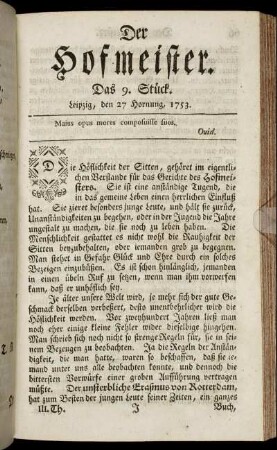 Der
Hofmeister.
Das 9. Stück.
Leipzig, den 27 Hornung, 1753.
Maius opus mores composuisse suos.
Ouid.
Die Höflichkeit der Sitten, gehört im eigentli-
chen Verstande für das Gerichte des Hofmei-
sters. Sie ist eine anständige Tugend, die
in das gemeine Leben einen herrlichen Einfluß
hat. Sie zieret besonders junge Leute, und hält sie zurück,
Unanständigkeiten zu begehen, oder in der Jugend die Jahre
ungestalt zu machen, die sie noch zu leben haben. Die
Menschlichkeit gestattet es nicht wohl die Rauhigkeit der
Sitten beyzubehalten, oder iemanden grob zu begegnen.
Man stehet in Gefahr Glück und Ehre durch ein solches
Bezeigen einzubüßen. Es ist schon hinlänglich, jemanden
in einen übeln Ruf zu setzen, wenn man ihm vorwerfen
kann, daß er unhöflich sey.
Je älter unsere Welt wird, je mehr sich der gute Ge-
schmack derselben verbessert, desto unentbehrlicher wird die
Höflichkeit werden. Vor zweyhundert Jahren ließ man
noch eher einige kleine Fehler wider dieselbige hingehen.
Man schrieb sich noch nicht so strenge Regeln für, sie in
seinem Bezeugen zu beobachten. Ja die Regeln der Anstän-
digkeit, die man hatte, waren so beschaffen, daß sie ie-
mand untet uns alle beobachten konnte, und dennoch die
bittersten Vorwürfe einer groben Aufführung vertragen
müßte. Der unsterbliche Erasmus von Rotterdam,
hat zum Besten der jungen Leute seiner Zeiten, ein ganzes
III. Th. J Buch,